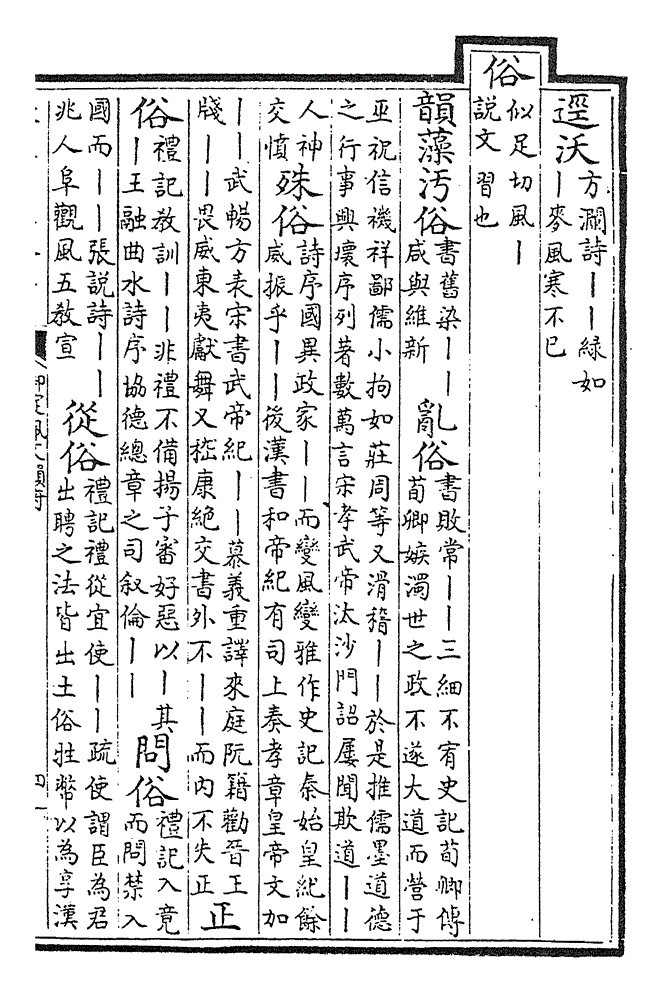 逕沃
方瀾詩丨丨緑如
丨麥風寒不已
俗
似足切風丨
説文習也
韻藻汚俗
書舊染丨丨
咸與維新
亂俗
書敗常丨丨三細不宥史記荀卿傳
荀卿嫉濁世之政不遂大道而營于
巫祝信禨祥鄙儒小拘如莊周等又滑稽丨丨於是推儒墨道德
之行事興壞序列著數萬言宋孝武帝汰沙門詔屢聞欺道丨丨
人神
交憤
殊俗
詩序國異政家丨丨而變風變雅作史記秦始皇紀餘
威振乎丨丨後漢書和帝紀有司上奏孝章皇帝文加
丨丨武暢方表宋書武帝紀丨丨慕義重譯來庭阮籍勸晉王
牋丨丨畏威東夷獻舞又嵇康絶交書外不丨丨而内不失正
正
俗
禮記教訓丨丨非禮不備揚子審好惡以丨其
丨王融曲水詩序協德總章之司叙倫丨丨
問俗
禮記入竟
而問禁入
國而丨丨張説詩丨丨
兆人阜觀風五教宣
從俗
禮記禮從宜使丨丨疏使謂臣為君
出聘之法皆出土俗牲幣以為享漢